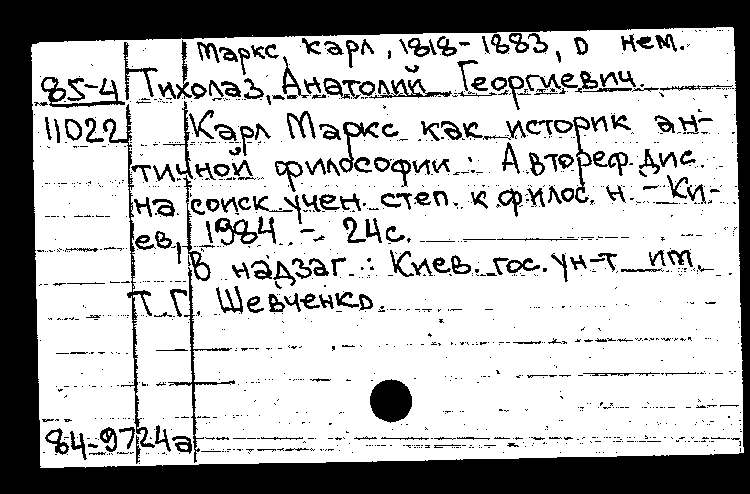 Маркс, Карл, 1818-1883, о нем.
85-4 Тихолаз, Анатолий Георгиевич.
11022 Карл Маркс как историк ан-
тичной философии : Автореф. дис.
на соиск. учен. степ. к. филос. н. - Ки-
ев, 1984. - 24 с.
В надзаг.: Киев. гос. ун-т им.
Т. Г. Шевченко.
84-9724а